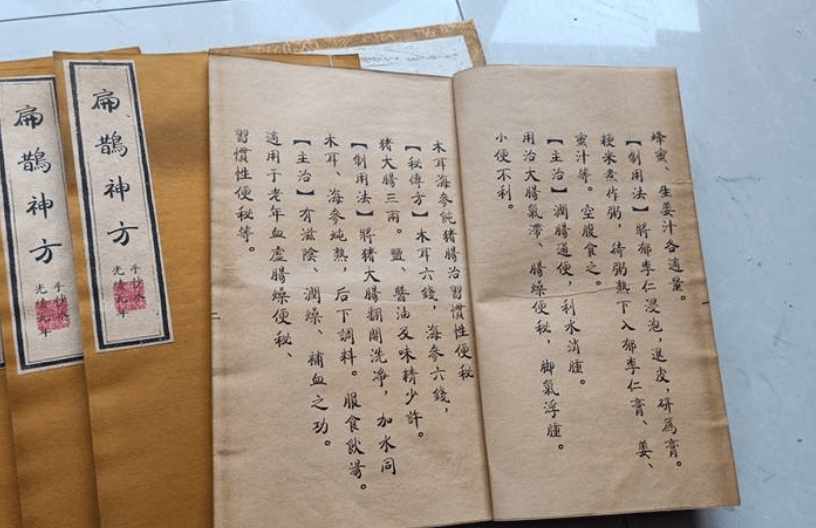 蜂蜜、生姜汁各適量。
【制用法】將郁李仁浸泡,退皮,研爲膏。
粳米煮作粥,待粥熟下入郁李仁膏、姜、
蜜汁等。空腹食之。
【主治】潤腸通便,利水消腫。
用治大腸氣滯、腸燥便秘,脚氣浮腫。
小便不利。
木耳海參炖猪腸治習慣性便秘
【秘傳方】木耳六錢,海參六錢,
猪大腸三兩。鹽、醬油及味精少許。
【制用法】將猪大腸翻開洗净,加水同
木耳、海參炖熟,后下調料。服食飲湯。
【主治】有滋陰、潤燥、補血之功。
適用于老年血虛腸燥便秘、
習慣性便秘等。
扁鵲神方
手抄本
光緒元年
扁鵲神方
手抄本
光緒元年